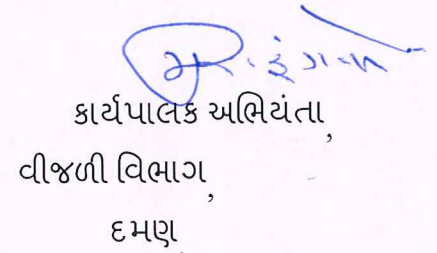 કાર્યપાલક અભિયંતા,
વીજળી વિભાગ,
દમણ